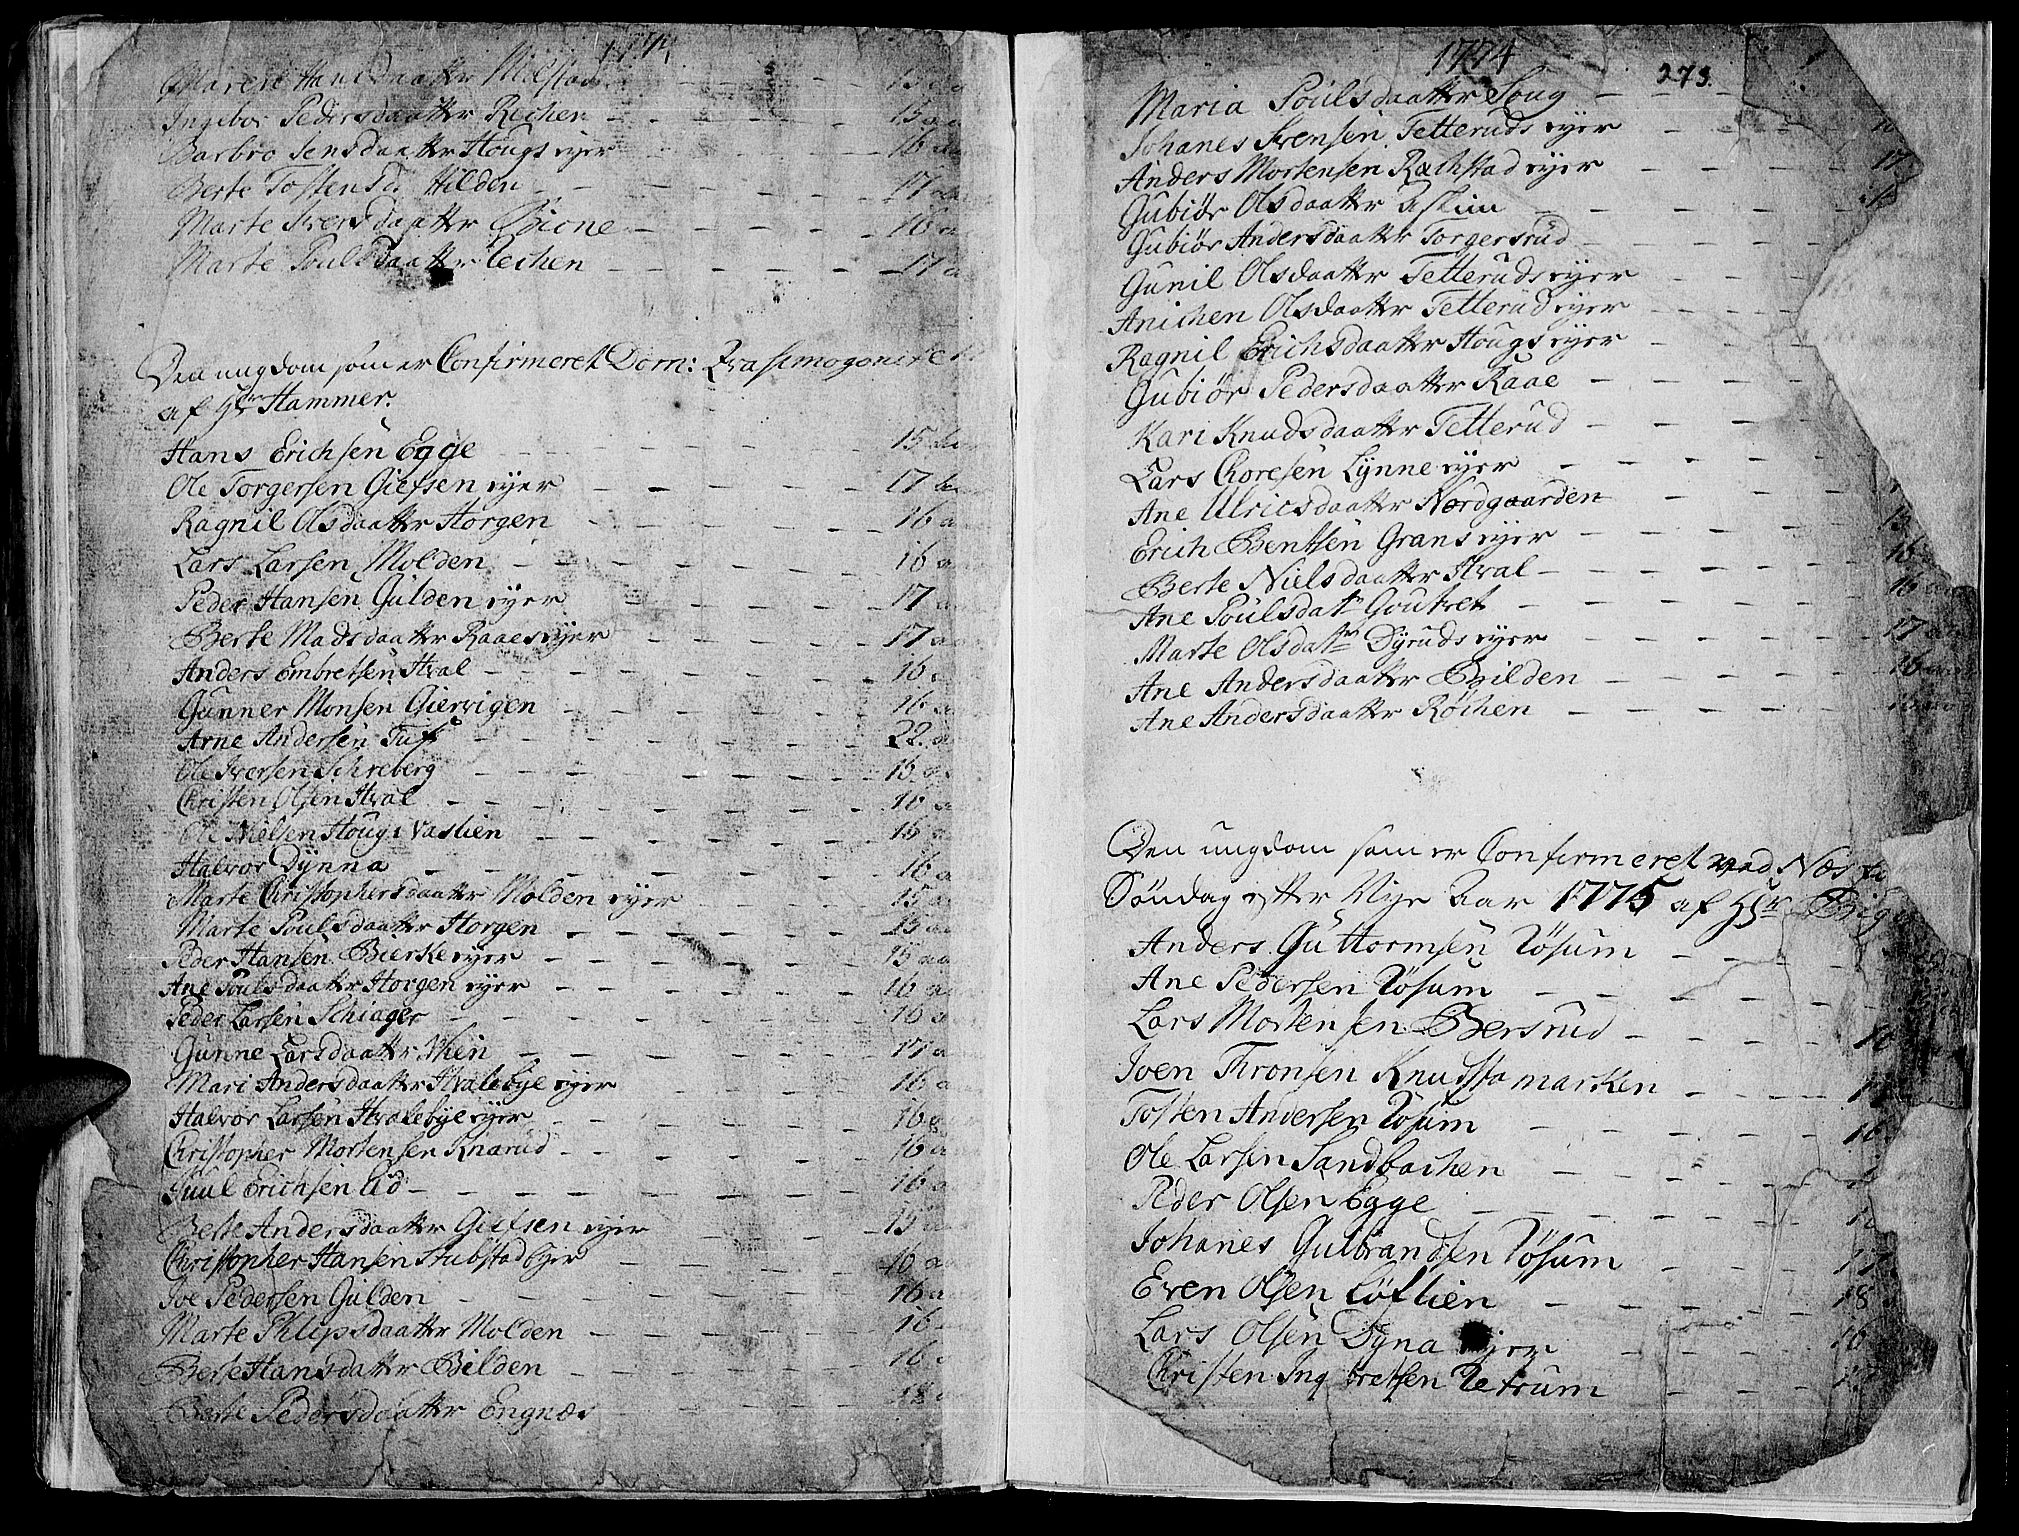 1774
Maren Hansdaatter Milstad 15
Ingebor Pedersdaatter Rechen 15 aa
Barbro Jensdaatter Hougs eyer 16 aa
Berte Tostensd: Hilden 17 aa
Marte Iversdaatter Bione 16 aa
Marte Poulsdaatter Rechen 17 a
Den ungdom som er Confirmeret Dom: Qvasimogoniti
af Hr Hammer.
Hans Erichsen Egge 15
Ole Torgersen Giefsen eyer 17
Ragnil Olsdaatter Horgen 16 a
Lars Larsen Molden 16 a
Peder Hansen Gulden eyer 17 a
Berte Madsdaatter Raaes eyer 17 aa
Anders Embretsen Hval 16
Gunner Monsen Giervigen 16 a
Arne Andersen Tuf 22. a
Ole Iversen Schreberg 16 a
Christen Olsen Hval 16 a
Ole Nielsen Houg Vaslien 16 a
Halvor Dynna 16 a
Marte Christophersdaatter Molden eyer 15 a
Marte Poulsdaatter Horgen 15 aa
Peder Hansen Bierke eyer 15 aa
Ane Poulsdaatter Horgen eyer 16 a
Peder Larsen Schiager 16 a
Gunne Larsdaatter Vien 17 a
Mari Andersdaatter Hvalebye eyer 16 a
Halvor Larsen Hvalebye eyer 16
Christopher Mortensen Knarud 16 a
Juul Erichsen Lid 16 a
Berte Andersdaatter Giefsen eyer 15
Christopher Hansen Stubstad Eyer 16 aa
Joe Pedersen Gulden 16 a
Marte Phlipsdaatter Molden 16
Berte Hansdatter Bilden 16
Berte Pedersdaatter Engnæs 18
1774
273.
Maria Poulsdaatter Soug
Johanes Svensen Tetteruds eyer
Anders Mortensen Rachstad eyer 17
Gubiør Olsdaatter Askim 18
Gubiør Andersdaatter Torgersrud
Gunil Olsdaatter Tetteruds eyer
Anichen Olsdaatter Tetterud eyer
Ragnil Erichsdaatter Hougs eyer
Gubiør Pedersdaatter Raae
Kari Knudsdaatter Tetterud
Lars Choresen Lynne eyer
Ane Ulricsdaatter Nordgaarden
Erich Bentsen Grans eyer 15
Berte Nielsdaatter Hval 16
Ane Poulsdatr Goutvet 16
Marte Olsdatr Dyruds eyer 17
Ane Andersdaatter Bilden 16
Ane Andersdaatter Røchen
Den ungdom som er Confirmeret ved Næs
Søndag efter Nye Aar 1775 af Hr
Anders Guttormsen Røsum
Ane Pedersen Røsum
Lars Mortensen Bersrud 16
Joen Tronsen Knudsta marken
Tosten Andersen Røsum 16
Ole Larsen Sandbachen
Peder Olsen Egge
Johanes Gulbrandsen Røsum 17
Even Olsen Løflien 18
Lars Olsen Dyna eyer 16
Christen Ingbretsen Retrum 17